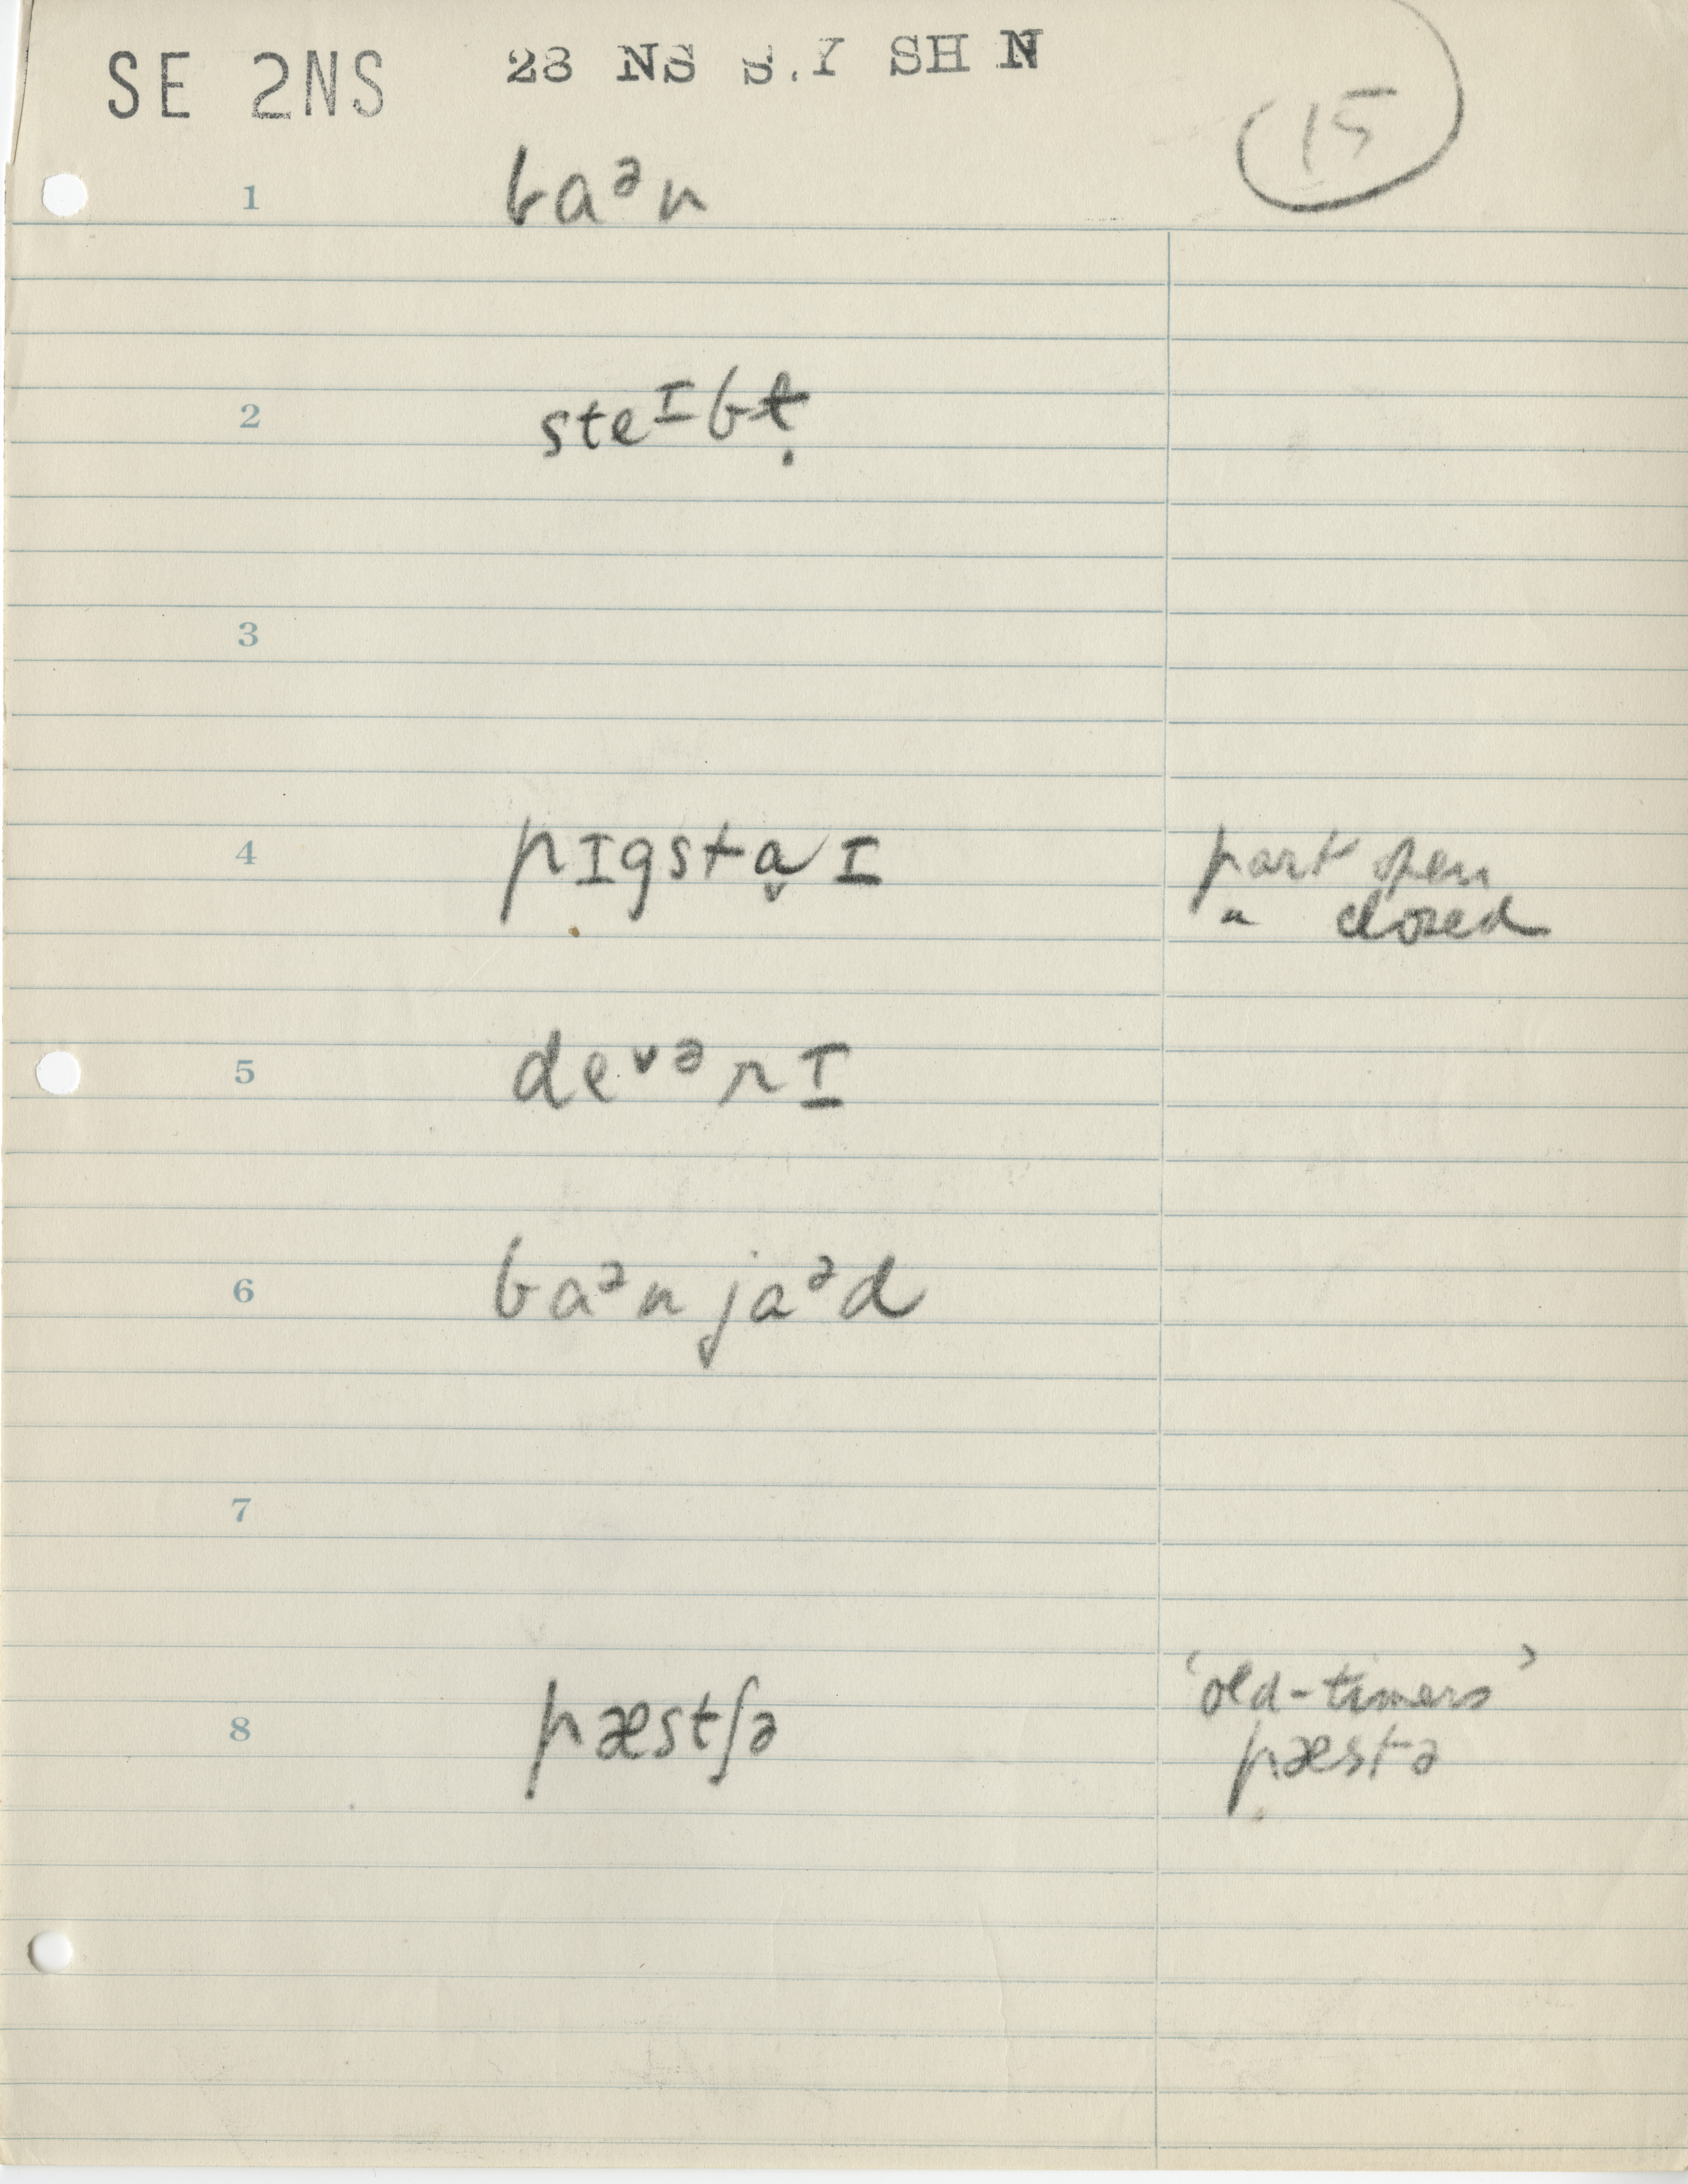 SE 2NS 28 NS S.Y SH N
15
1 baᵊn
2 steᴵbɫ̣
3
4 pɪgstɑ̬ɪ part open
" closed
5 deᵛᵊrɪ̱
6 baᵊn jaᵊd
7
8 pæstʃə 'old-timers'
pæstə